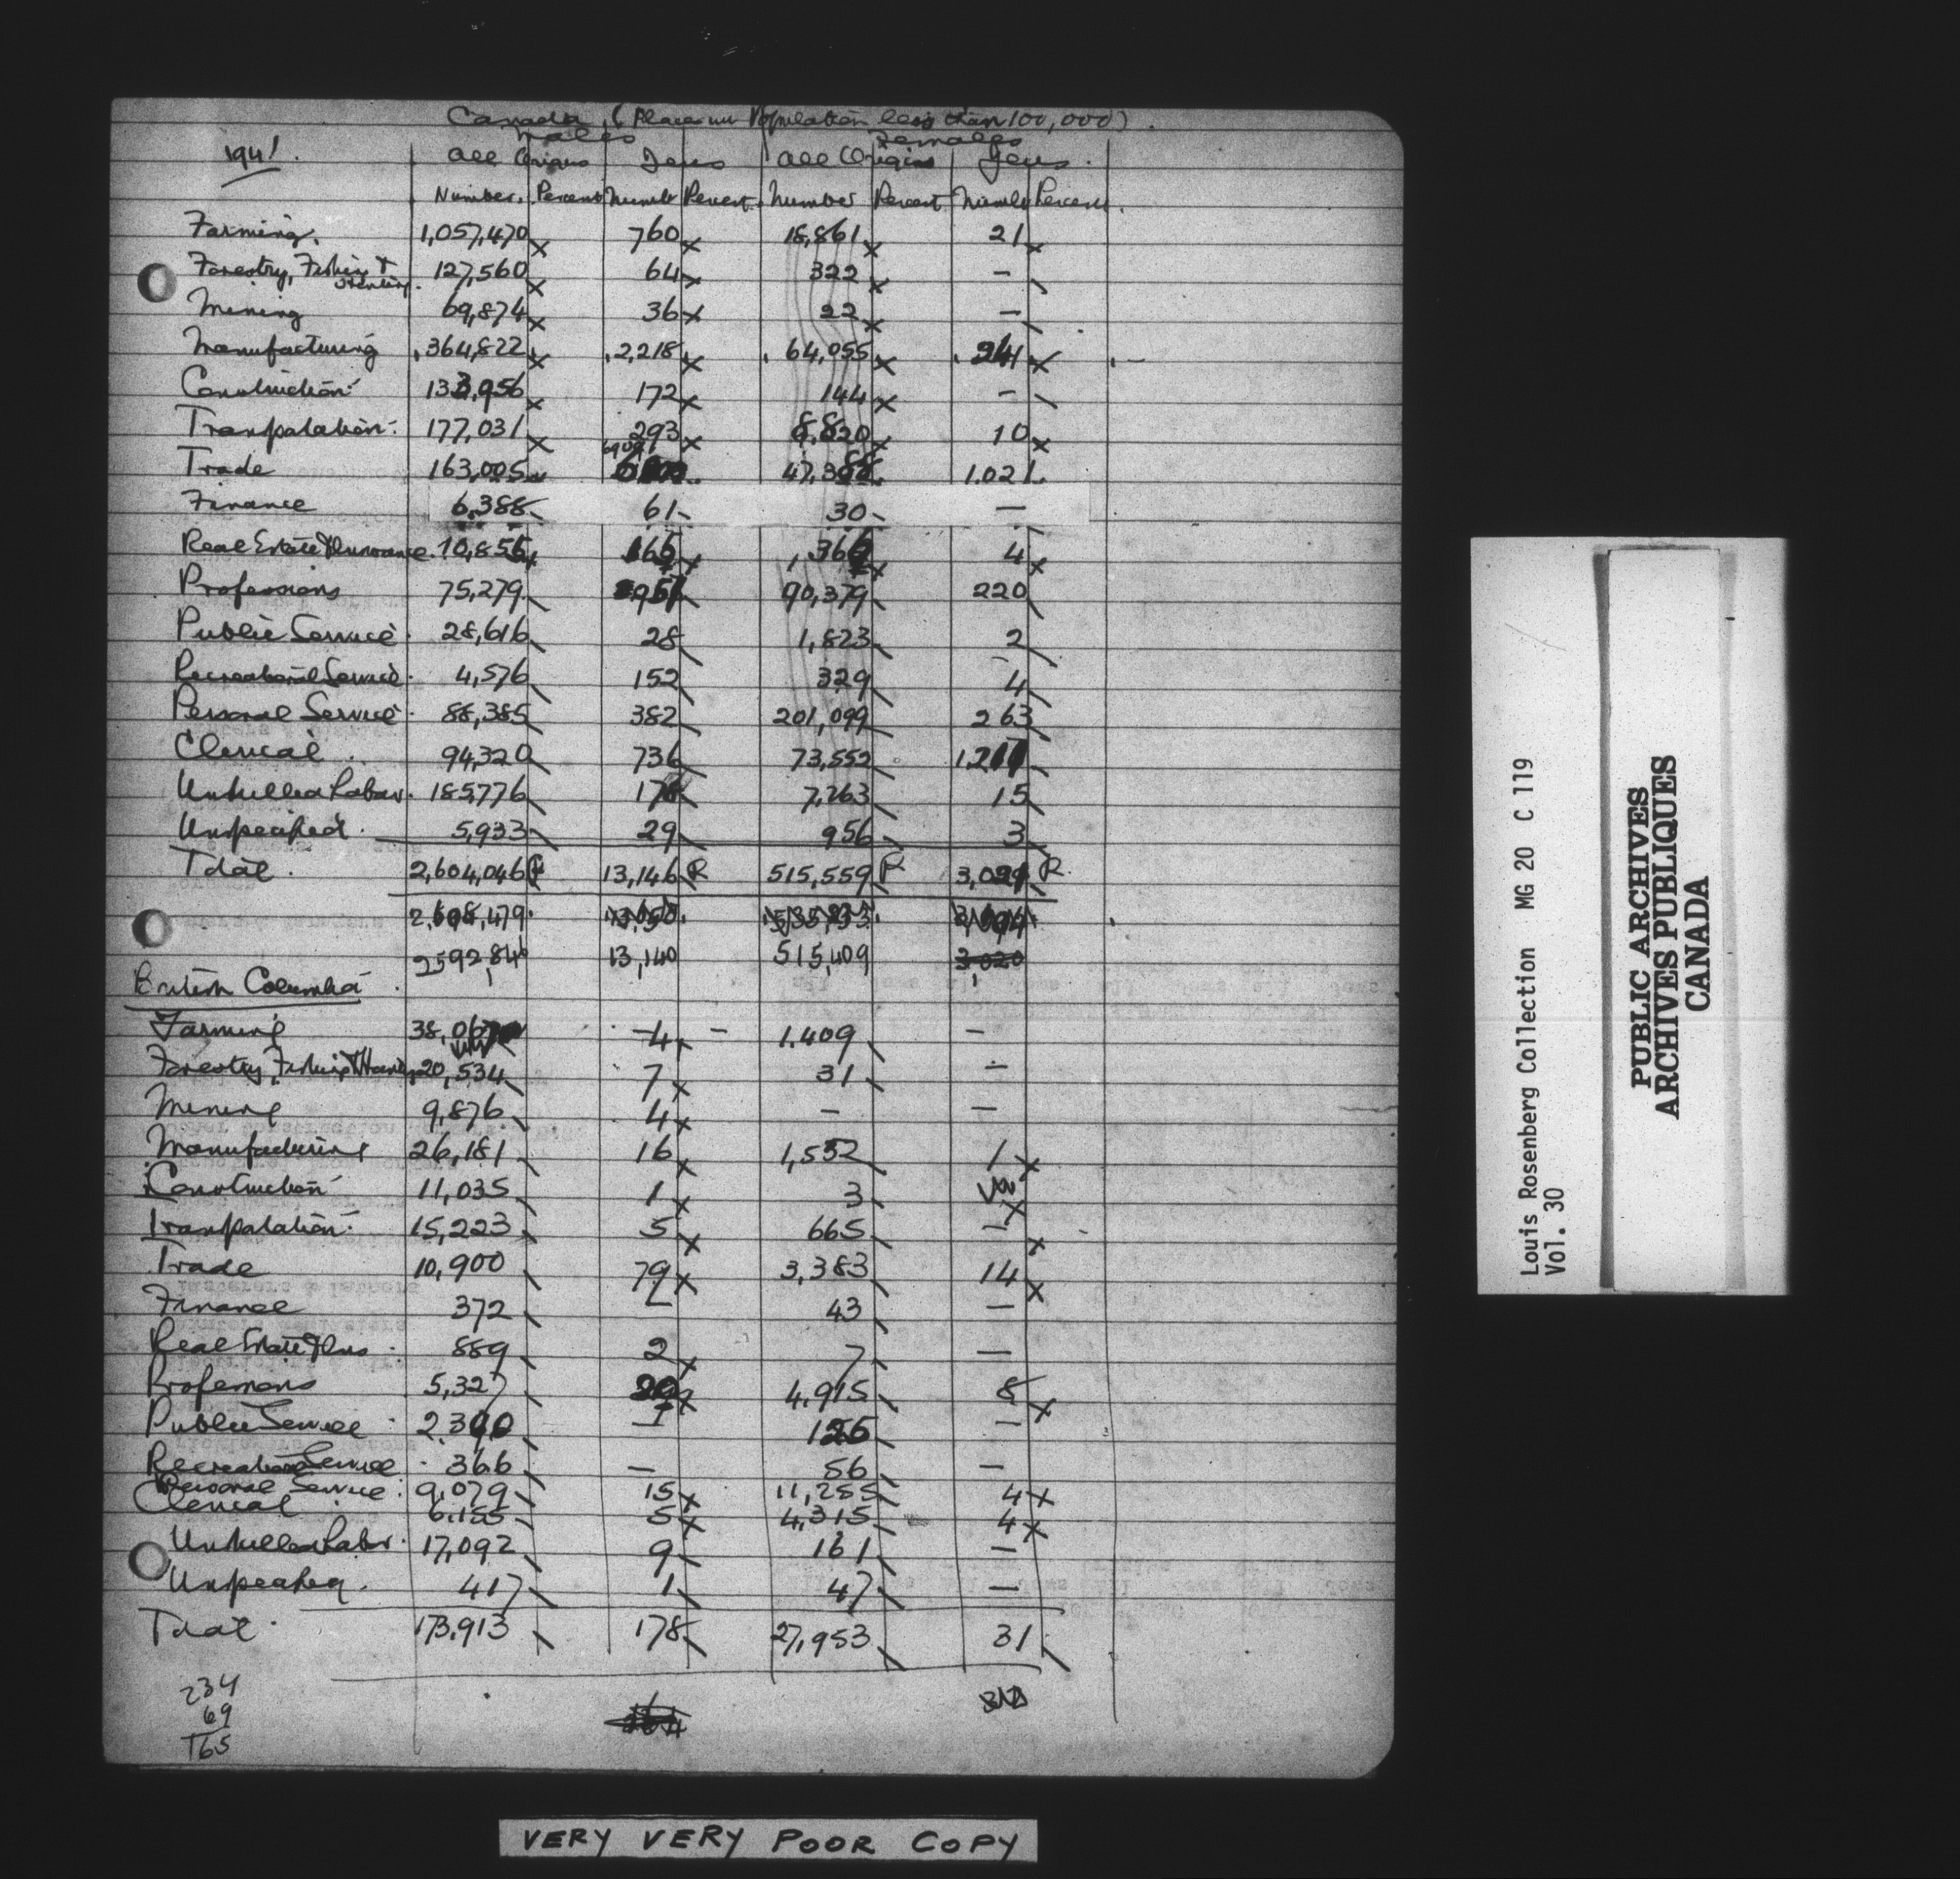 Canada (Places un Population less than 100,000)
Males Females
1941. All Origins Jews All Origins Jews.
Number. Percent Number Percent. Number Percent Number Percent.
Farming. 1,057,470 x 760 x 18,861 x 21 x
Forestry, Fishing & 127,560 x 64 x 322 x –
Mining 69,874 x 36 x 22 x –
Manufacturing 364,822 x 2,218 x 64,055 x 241 x
Construction 133,956 x 172 x 144 x –
Tranpotation. 177,031 x 293 x 8,820 x 10 x
Trade 163,005 1.021
Finance 6,388 61 30 —
Real Estate & Insurance. 10,856 x 4 x
Professions 75,279 90,379 220
Public Service. 28,616 28 1,823 2
Recreational Service. 4,576 152 329 4
Personal Service. 88,385 382 201,099 263
Clerical. 94,320 736 73,552
Unskilled Labour. 185,776 7,263 15
Unspecified. 5,933 29 956 3
Total. 2,604,046 R 13,146 R 515,559 R R.
13,140 515,409 3,020
British Columbia.
Farming 4 – 1.409 –
Forestry, Fishing & 20,534 7 x 31 –
Mining 9,876 4 x – –
Manufacturing 26,181 16 x 1,552 1 x
Construction 11,035 1 x 3
Tranpotation. 15,223 5 x 665 – x
Trade 10,900 79 x 3,383 14 x
Finance 372 43 —
Real Estate & Ins. 889 2 x 7 —
Professions 5,327 4,915 8 x
Public Service. 126 –
Recreation Service 366 — 56 –
Personal Service. 9,079 15 x 11,255 4 x
Clerical 6,155 5 x 4,315 4 x
Unskilled Labr. 17,092 9 161 —
Unspecified. 417 1 47 —
Total. 173,913 178 27,953 31
234
69
165
Louis Rosenberg Collection MG 20 C 119
Vol. 30
PUBLIC ARCHIVES
ARCHIVES PUBLIQUES
CANADA
VERY VERY POOR COPY